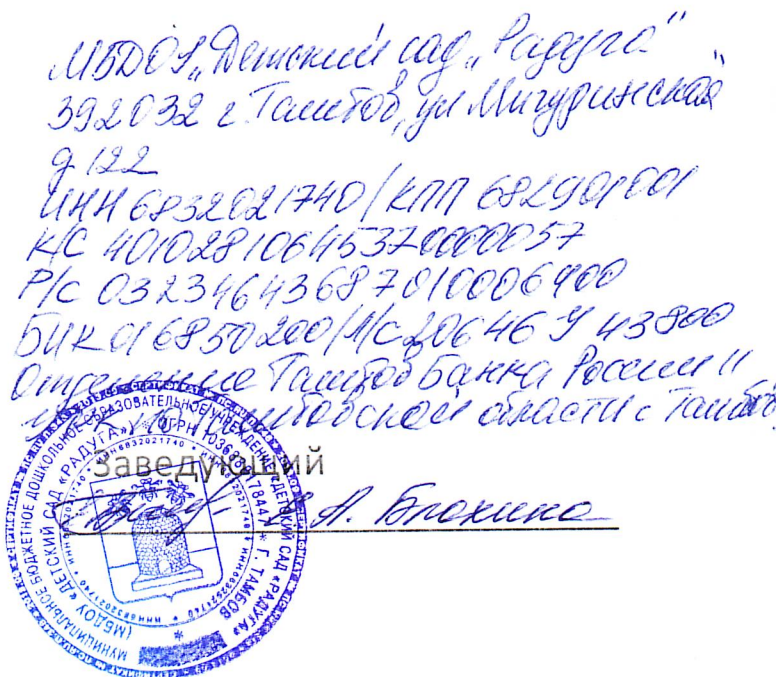 МБДОУ „Детский сад „Радуга"
392032 г. Тамбов, ул Мичуринская
д 122
ИНН 6832021740 / КПП 682901001
К/С 40102810645370000057
Р/С 03234643687010006400
БИК 016850200 / Л/С 20646У43800
Отделение Тамбов Банка России //
Тамбовской области г Тамбов
Заведующий
А. Блохина
МУНИЦИПАЛЬНОЕ БЮДЖЕТНОЕ ДОШКОЛЬНОЕ ОБРАЗОВАТЕЛЬНОЕ УЧРЕЖДЕНИЕ «ДЕТСКИЙ САД «РАДУГА»
(МБДОУ «ДЕТСКИЙ САД «РАДУГА») * ОГРН * Г. ТАМБОВ *
ИНН 6832021740 * ИНН 6832021740 * ИНН 6832021740 * ИНН 6832021740